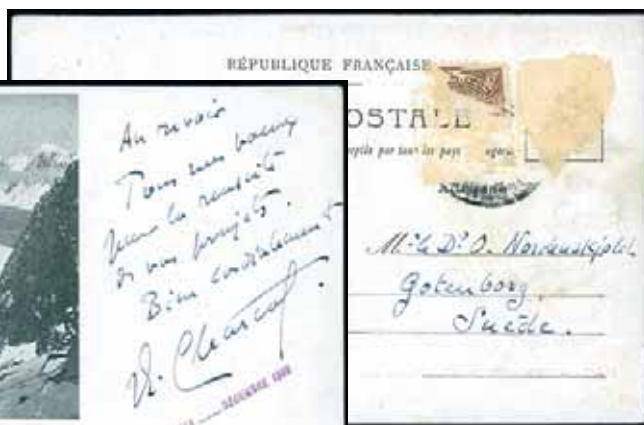 RÉPUBLIQUE FRANÇAISE
OSTALE
par tous les pays
Mr le Dr O. Nordenskjold
Gotenborg
Suède.
Au revoir
Tous mes voeux
pour la réussite
de vos projets.
Bien cordialement
Charcot
DÉCEMBRE